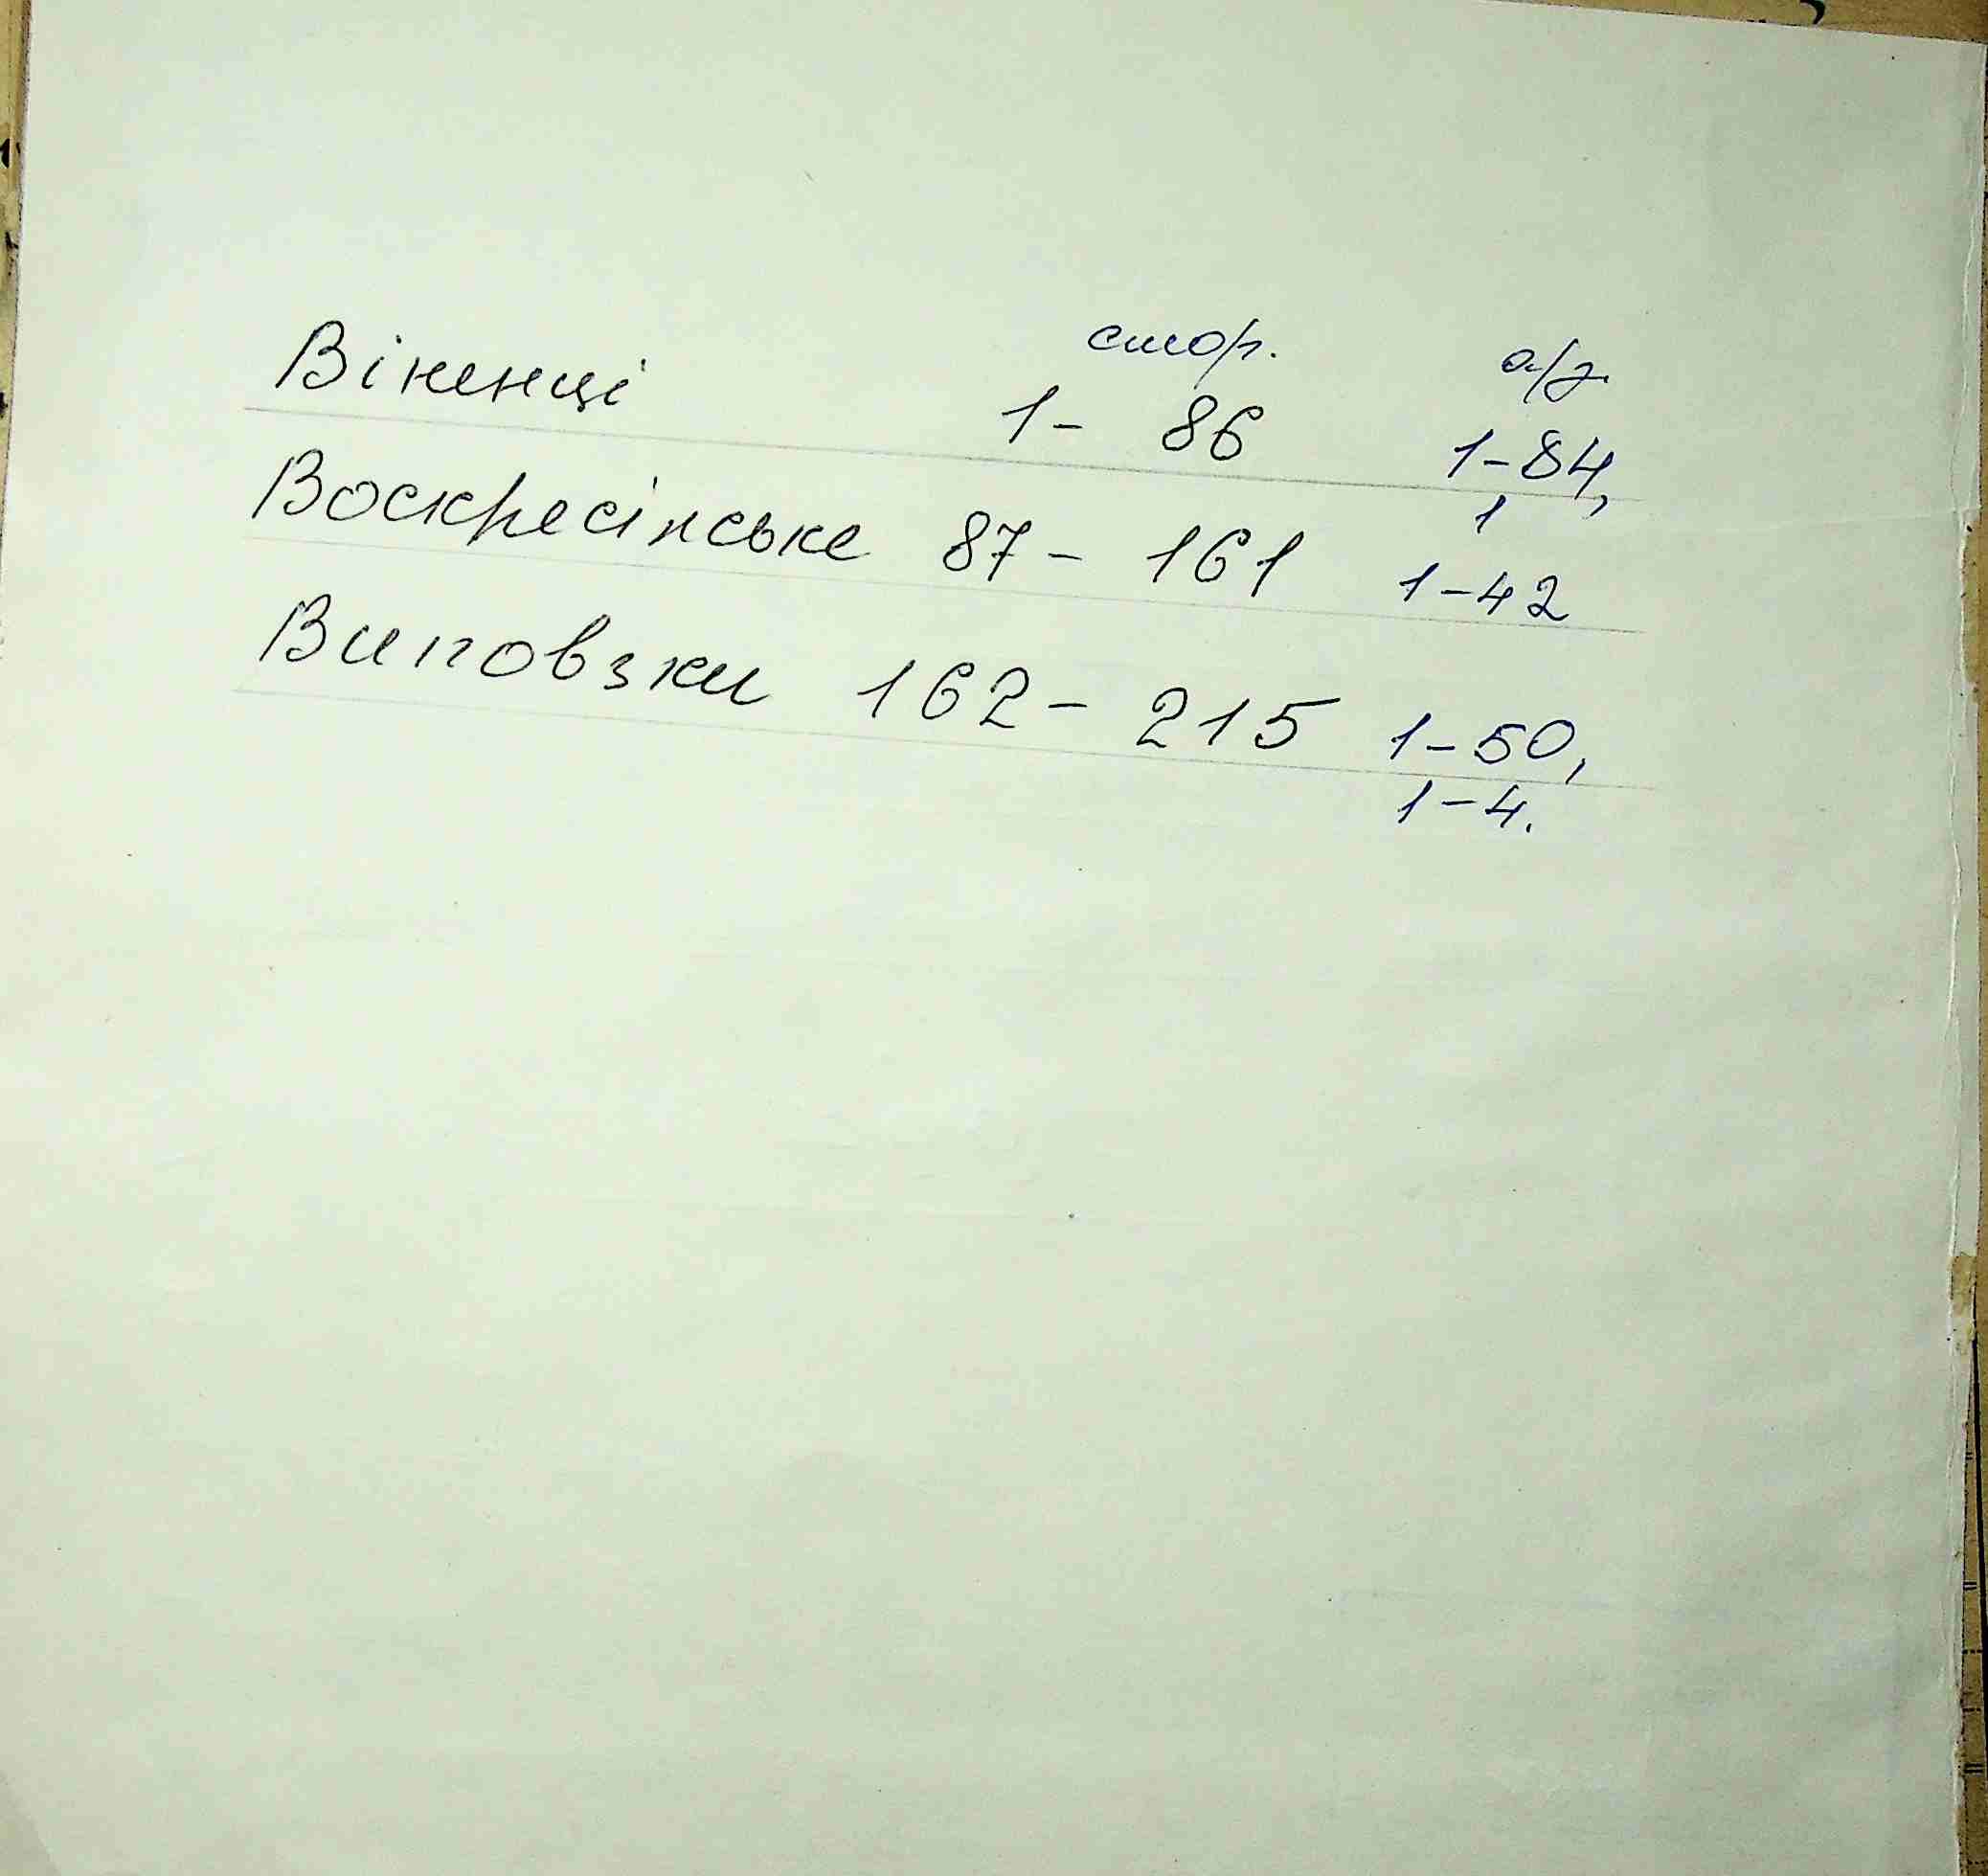 стор. а/з.
Віненці 1- 86 1-84,
1
Воскресінське 87- 161 1-42
Виповзки 162- 215 1-50,
1-4.